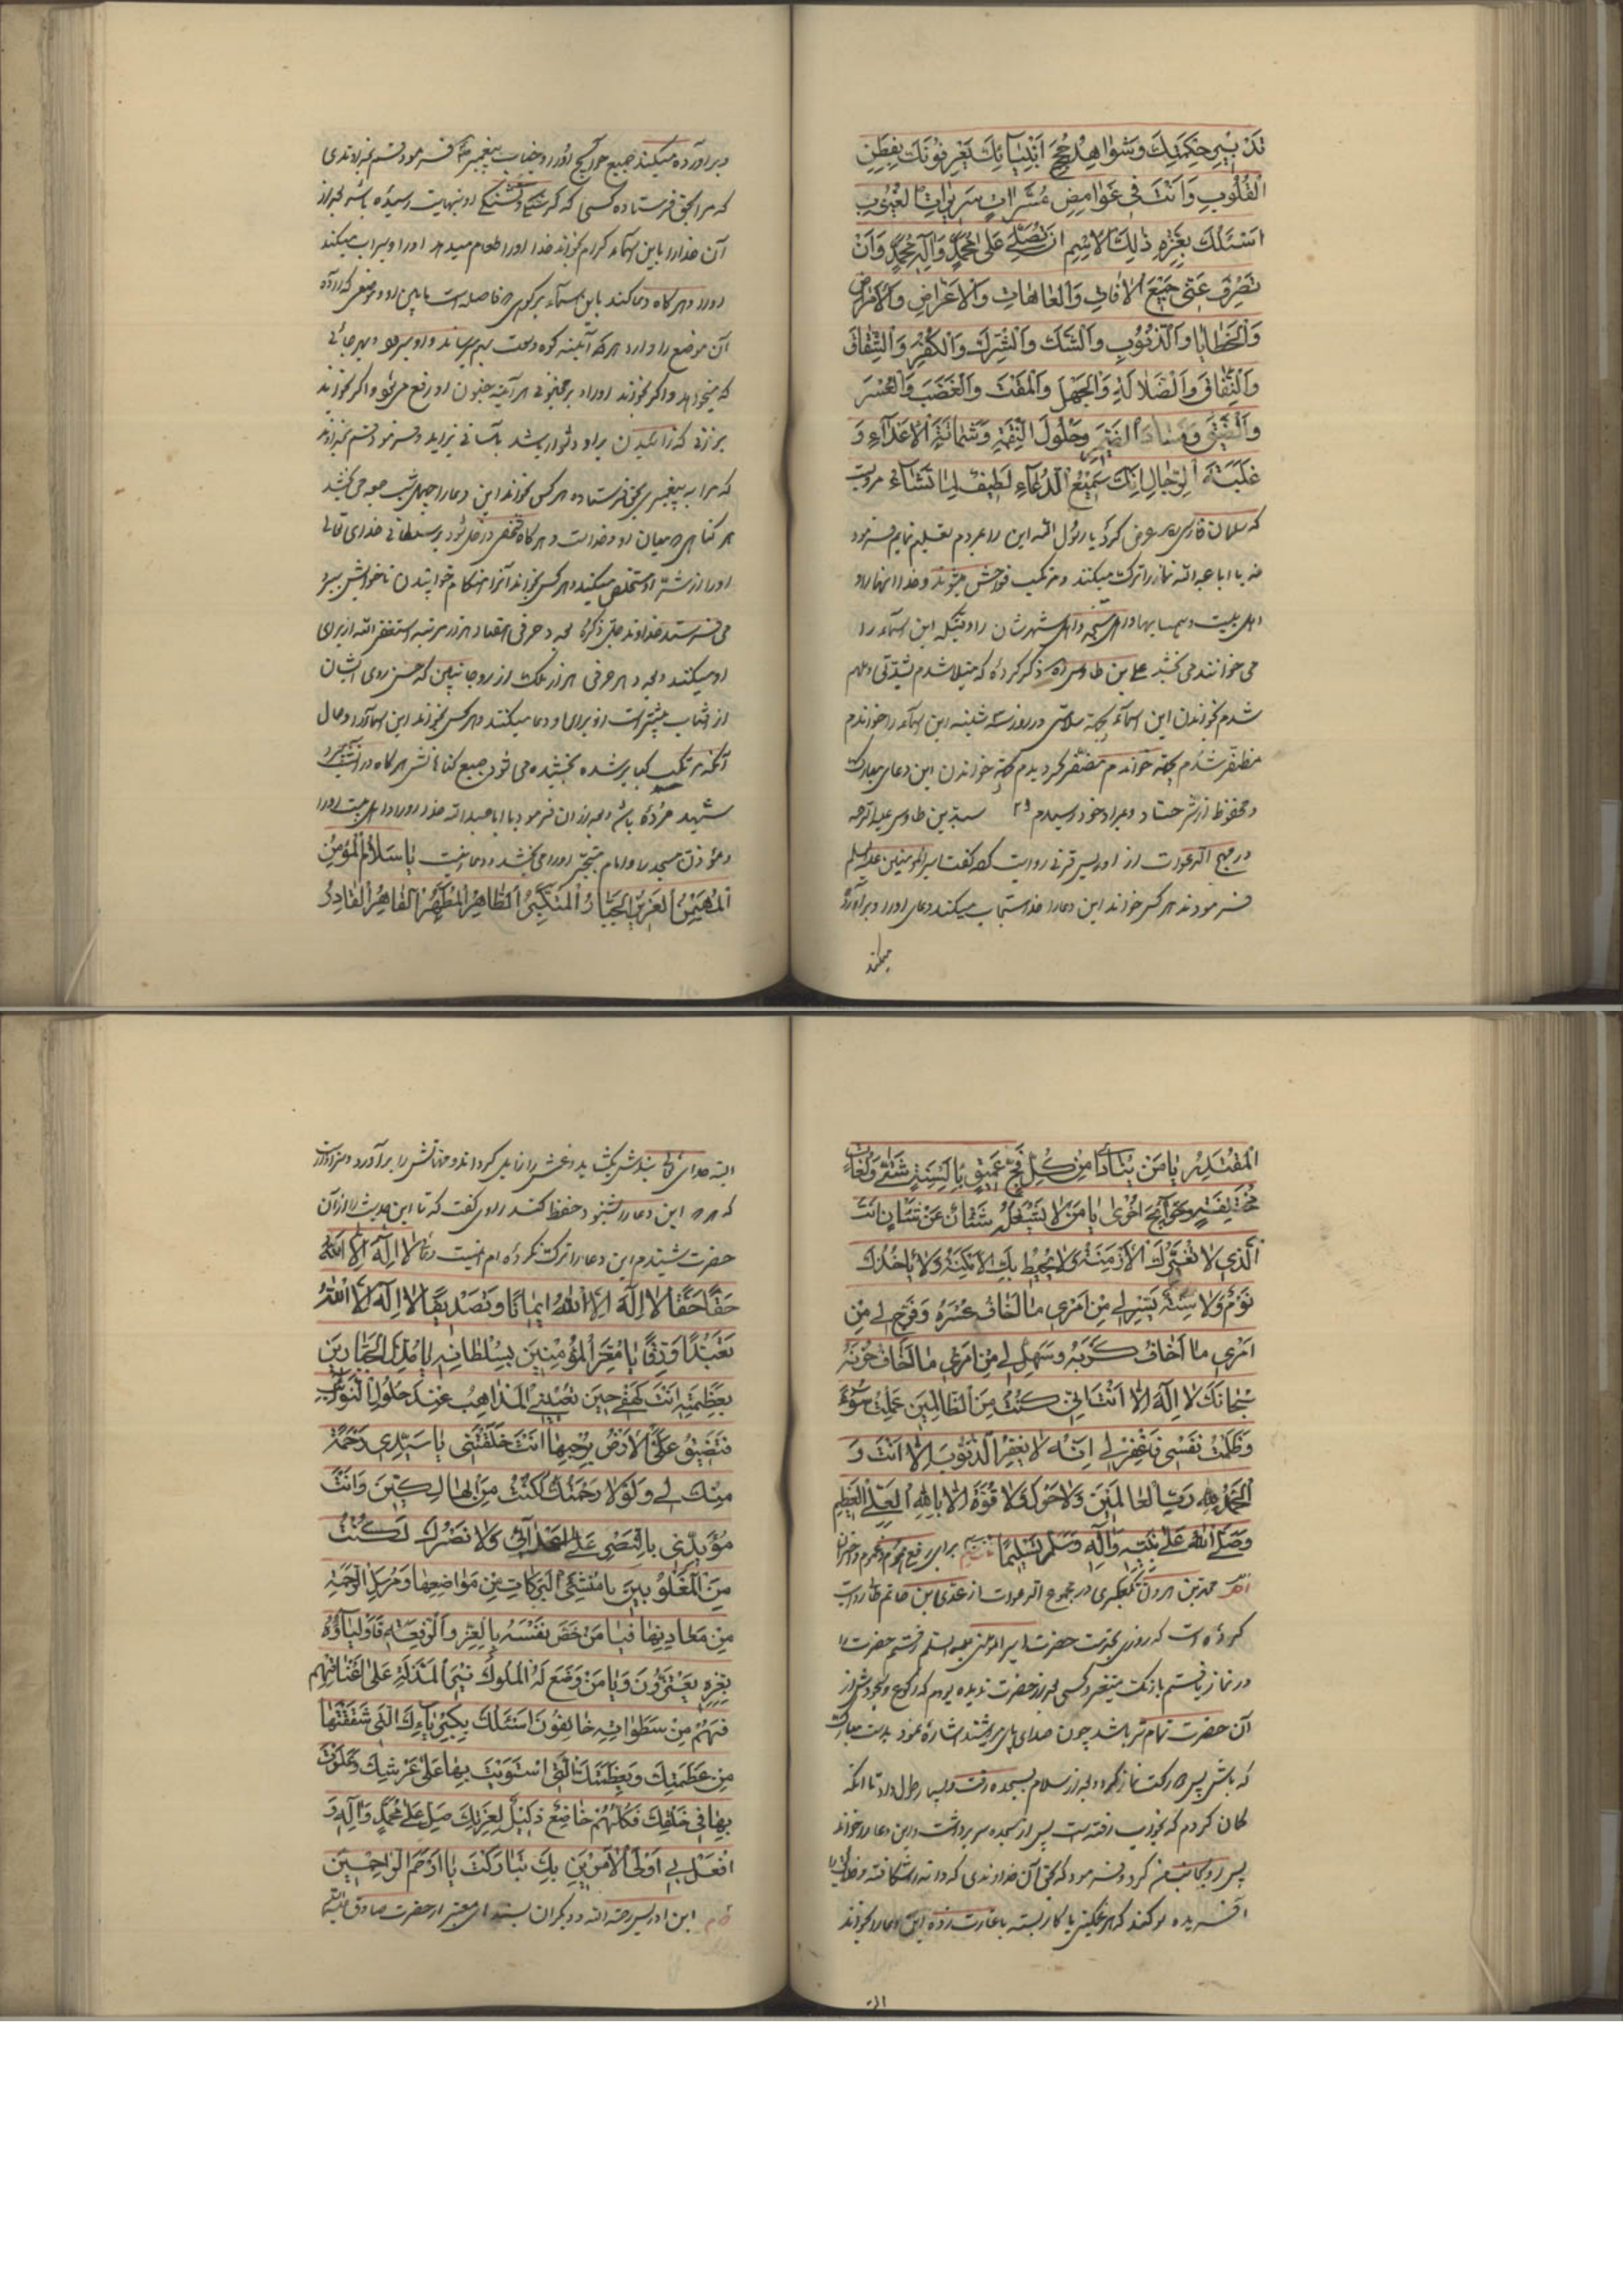 تدبير حكمتك وشواهد حجج انبيائك بفطن
القلوب وانت في غوامض مسرات سريرات الغيوب
اسئلك بعزة ذلك الاسم ان تصلي على محمد وآل محمد وان
تصرف عني جميع الافات والعاهات والاعراض والامراض
والخطايا والذنوب والشك والشرك والكفر والشقاق
والنفاق والضلالة والجهل والمقت والغضب والعسر
والضيق وفساد الضمير وحلول النقمة وشماتة الاعداء و
غلبة الرجال انك سميع الدعاء لطيف لما تشاء مرويست
که سلمان فارسی عرض کرد یا رسول الله این را بمردم تعلیم نمایم فرمود
نه یا ابا عبد الله نماز را ترک میکنند و مرتکب فواحش میشوند و خدا اینها را و
اهل بیت و همسایها و اهل مسجد و اهل شهرشان را وقتیکه این اسماء را
می خوانند می بخشد علی بن طاوس ره ذکر کرده که مبتلا شدم بشدتی و ملهم
شدم بخواندن این اسماء بجهة سلامتی در روز سه شنبه این اسماء را خواندم
مظفر شدم بجهة خواندن این دعای مبارک
و محفوظ از شر حساد و بمراد خود رسیدم سید بن طاوس علیه الرحمه
در مهج الدعوات از اویس قرنی روایت کرده گفت امیر المومنین علیه السلم
فرمودند هر کس خواند این دعا را خدا مستجاب میکند دعای او را و برآورده
میکند
و برآورده میکند جمیع حوایج او را و جناب پیغمبر ص فرمود قسم بخداوندی
که مرا بحق فرستاده کسی که گرسنگی و تشنگی او بنهایت رسیده باشد بعد از
آن خدا را باین اسماء کرام بخواند خدا او را طعام میدهد او را و سیراب میکند
او را و هر گاه دعا کند باین اسماء بر کوهی که فاصله است مابین او و موضعی که اراده
آن موضع را دارد
بر زنی که زائیدن براو دشوار باشد بآسانی بزاید و فرمود قسم بخداوند
که مرا به پیغمبری بحق فرستاده هر کس بخواند این دعا را چهل شب جمعه می بخشد
هر گناهی که میان او و خداست و هر گاه شخصی داخل شود بر سلطانی خدای تعالی
او را از شر او مستخلص میکند و هر کس بخواند آنرا هنگام خوابیدن تا خوابش ببرد
می فرستد خداوند جل ذکره بعدد حرفی هفتاد هزار مرتبه استغفر الله از برای
او میکنند و بعدد هر حرفی هزار ملک از روحانیین که حسن روی ایشان
از آفتاب بیشتر است از برای او دعا میکنند و هر کس بخواند این اسما را و حال
آنکه مرتکب کبایر شده بخشیده می شود جمیع گناهانش
شهید مرده باشد و بعد از آن فرمود یا ابا عبد الله خدا او را و اهل بیت او را
و مؤذن مسجد را و امام مسجد او را می بخشد و دعا اینست يا سلام المؤمن
المهيمن العزيز الجبار المتكبر الطاهر المطهر القاهر القادر
المقتدر يا من ينادى من كل فج عميق بالسنة شتى ولغات
مختلفة وحوائج اخرى يا من لا يشغله شان عن شان انت
الذي لا تغيرك الازمنة ولا يحيط بك الامكنة ولا ياخذك
نوم ولا سنة يسر لي من امري ما اخاف عسره وفرج لي من
امري ما اخاف كربه وسهل لي من امري ما اخاف حزنه
سبحانك لا اله الا انت اني كنت من الظالمين عملت سوء
وظلمت نفسي فاغفر لي انه لا يغفر الذنوب الا انت و
الحمد لله رب العالمين ولا حول ولا قوة الا بالله العلي العظيم
وصلى الله على نبيه وآله وسلم تسليما برای رفع هموم و غموم و احزان
محمد بن هارون تلعکبری در مجموع الدعوات از عدی بن حاتم طائی روایت
کرده است که روزی بخدمت حضرت امیر المومنین علیه السلم رفتم حضرت را
در نماز یافتم با رنگ متغیر و کسی بعد از حضرت ندیده بودم که رکوع و سجودش از
آن حضرت تمام تر باشد چون صدای پای مرا شنید اشاره نمود بدست مبارک
که باش پس رکعت نماز کرد و بعد از سلام بسجده رفت و بسیار طول داد تا آنکه
گمان کردم که بخواب رفته است پس از سجده سر برداشت و این دعا را خواند
پس رو بجانب من کرد و فرمود که بحق آن خداوندی که دانه را شکافته و خلایق را
آفریده سوگند که هر غمگینی یا کار بسته یا غارت زده این دعا را بخواند
البته
البته خدای تعالی بندش بگشاید و غمش را زایل گرداند و حاجتش را برآورد و سزاوار است
که هر که این دعا را بشنود حفظ کند راوی گفت که تا این حدیث را از آن
حضرت شنیدم این دعا را ترک نکرده ام اینست دعا لا اله الا الله
حقا حقا لا اله الا الله ايمانا وتصديقا لا اله الا الله
تعبدا ورقا يا معز المؤمنين بسلطانه يا مذل الجبارين
بعظمته انت كهفي حين تعييني المذاهب عند حلول النوائب
فتضيق علي الارض برحبها انت خلقتني يا سيدي رحمة
منك لي ولولا رحمتك لكنت من الهالكين وانت
مؤيدي بالنصر على اعدائي ولولا نصرك لكنت
من المغلوبين يا منشئ البركات من مواضعها ومرسل الرحمة
من معادنها فيا من خص نفسه بالعز والرفعة فاولياؤه
بعزه يعتزون ويا من وضع له الملوك نير المذلة على اعناقهم
فهم من سطواته خائفون اسئلك بكبريائك التي شققتها
من عظمتك وبعظمتك التي استويت بها على عرشك وعلوت
بها في خلقك فكلهم خاضع ذليل لعزتك صل على محمد وآله و
افعل بي اولى الامرين بك تباركت يا ارحم الراحمين
ابن ادریس رحمه الله و دیگران بسندهای معتبر از حضرت صادق